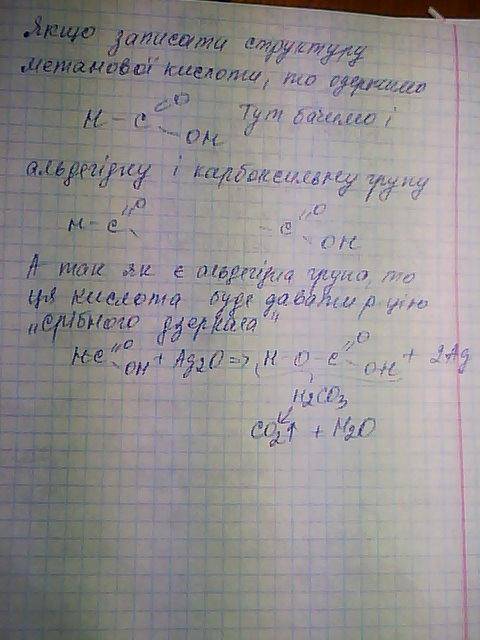 Якщо записати структуру
метанової кислоти, то одержимо
H - C =O - OH Тут бачимо і
альдегідну і карбоксильну групу
H - C =O - C =O OH
А так як є альдегідна група, то
ця кислота буде давати р-цію
„срібного дзеркала"
H-C =O OH + Ag2O => H - O - C =O OH + 2Ag
H2CO3
CO2↑ + H2O